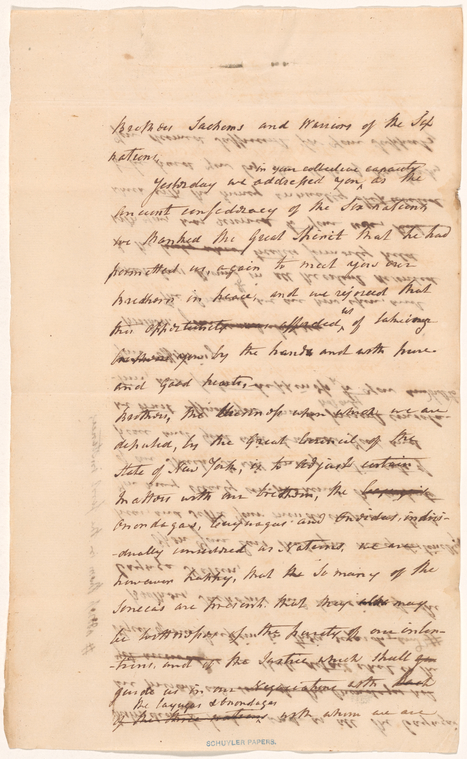 Brothers Sachems and Warriors of the Six
nations,
in your collective capacity
Yesterday we addressed you, as the
Ancient confederacy of the Six nations,
we thanked the Great Spirit that he had
permitted us again to meet you our
brethren in peace, and we rejoiced that
this opportunity was afforded us of taking
you by the hand and with pure
and good hearts,
Brothers, the business upon which we are
deputed, by the Great Council of the
State of New York, is to adjust certain
matters with our brethren, the Cayugas
Onondagas, Cayugas and Oneidas, indivi-
-dually considered as Nations, we are
however happy, that the so many of the
Senecas are present. that they also may
be witnesses of the purity of our inten-
-tions, and of the Justice which shall
guide us in our Negociations with each
the Cayugas & Onondagas
of the three nations with whom we are
SCHUYLER PAPERS.